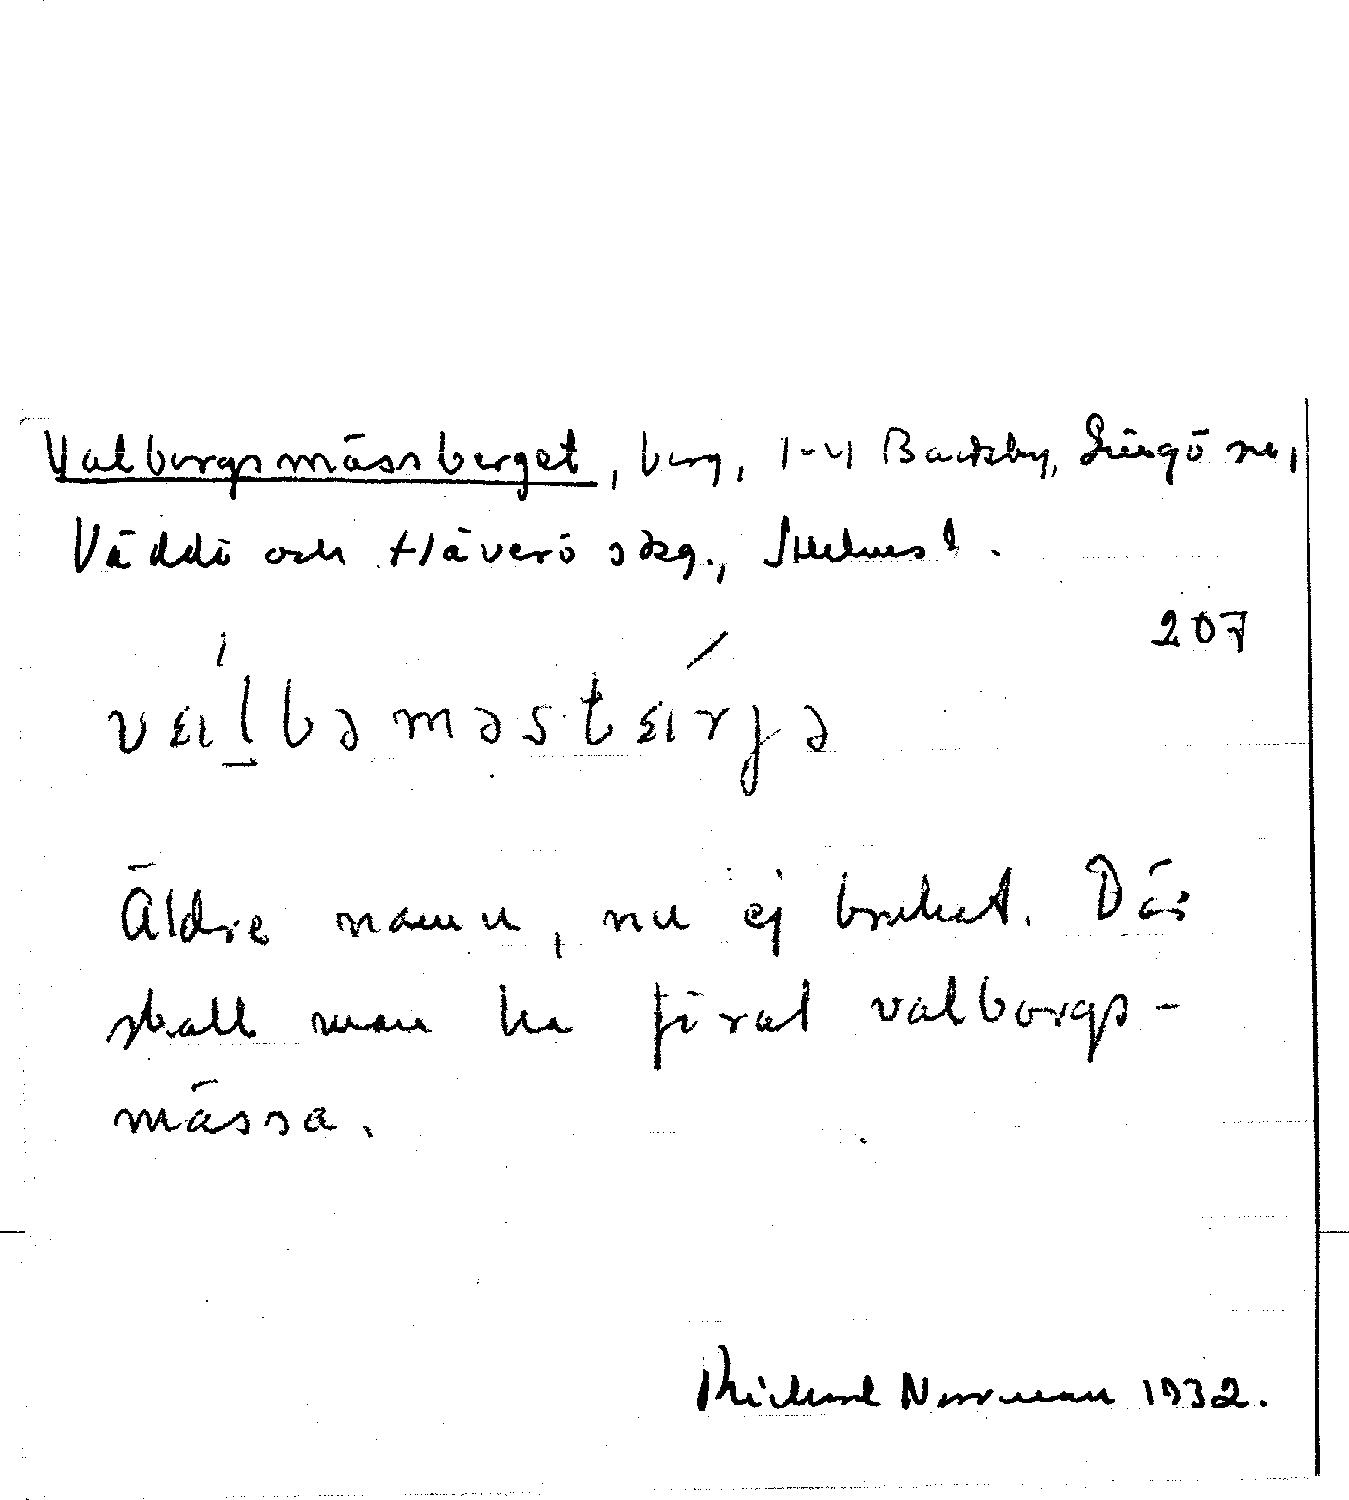 Valborgsmässberget, berg, 1-4 Backby, Singö sn,
Väddö och Häverö skg.,
207
Äldre namn, nu ej brukat. Där
skall man ha firat valborgs-
mässa.
Richard Norrman 1932.